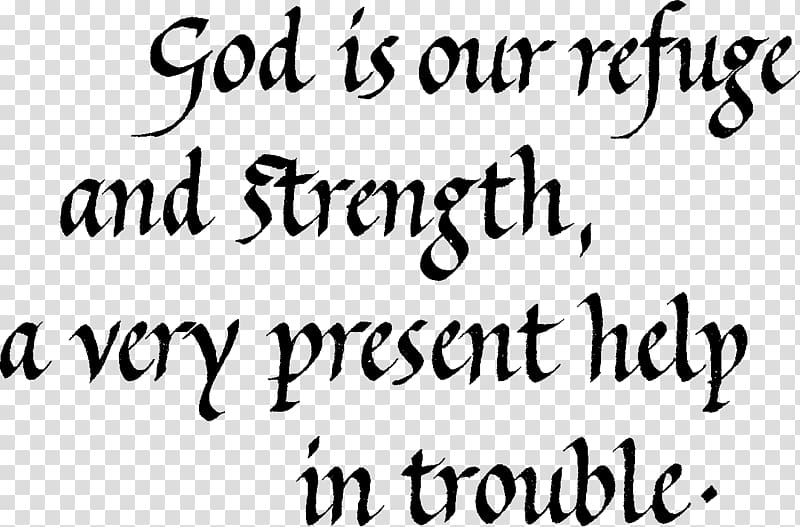 God is our refuge
and strength,
a very present help
in trouble.